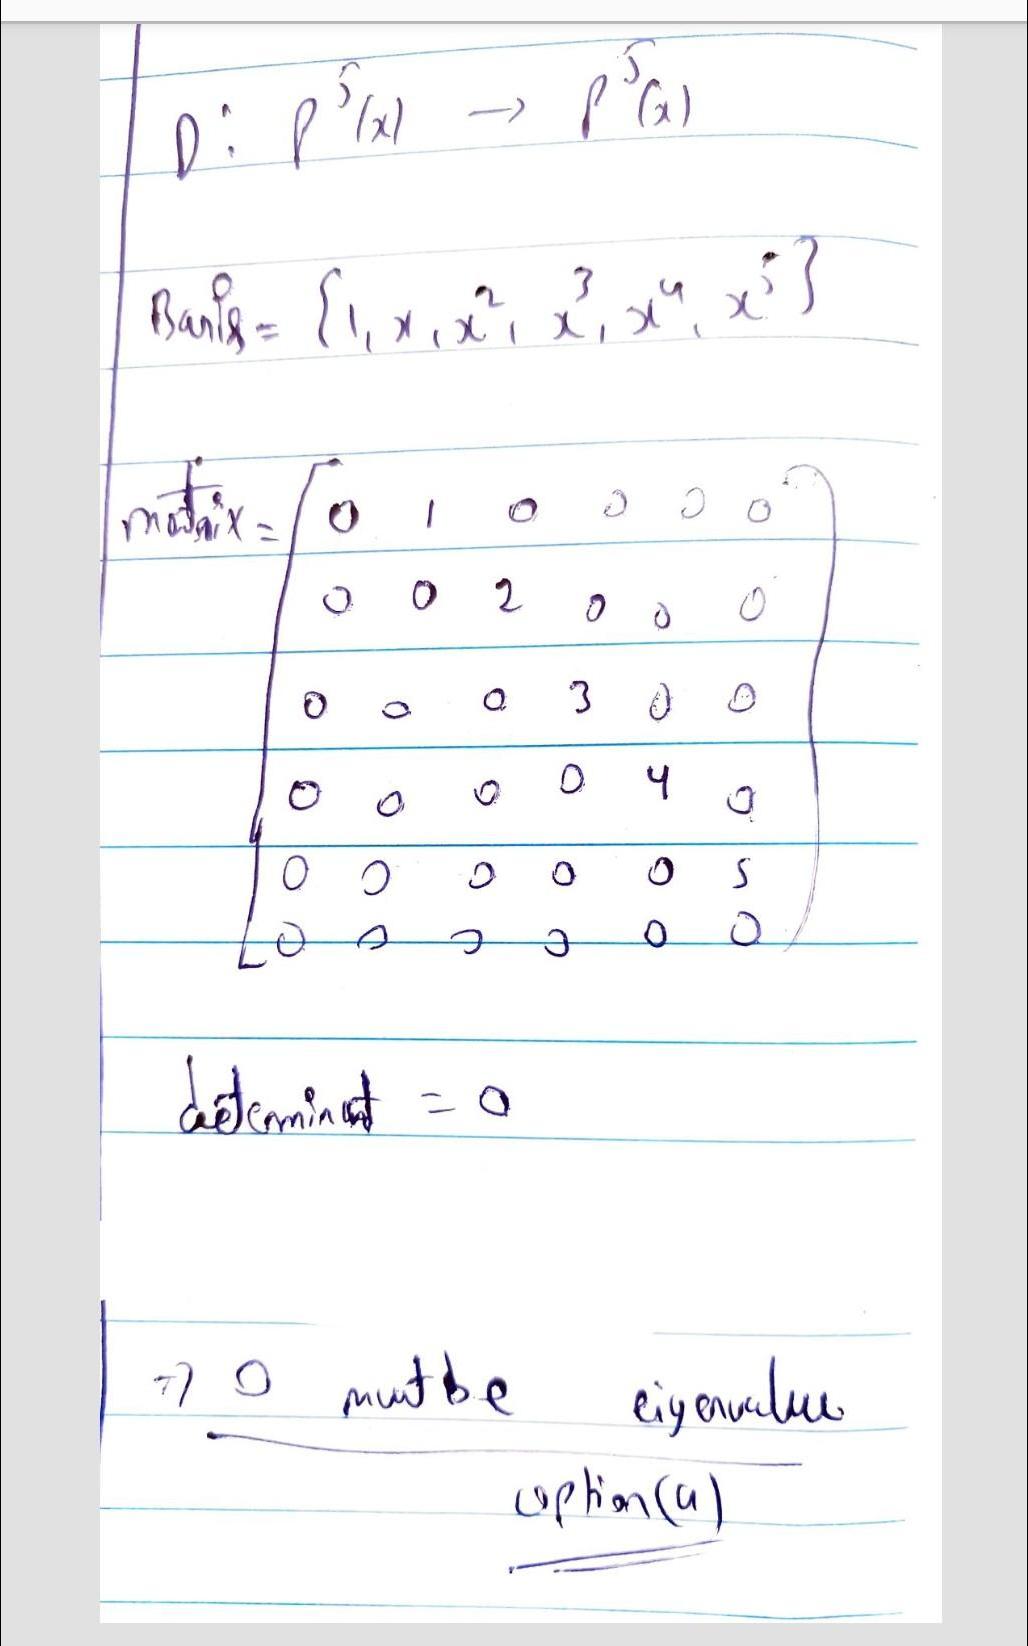 D: P⁵(x) → P⁵(x)
Basis = {1, x, x², x³, x⁴, x⁵}
matrix = [0 1 0 0 0 0
0 0 2 0 0 0
0 0 0 3 0 0
0 0 0 0 4 0
0 0 0 0 0 5
0 0 0 0 0 0]
determinant = 0
=> 0 must be eigenvalue
option (a)